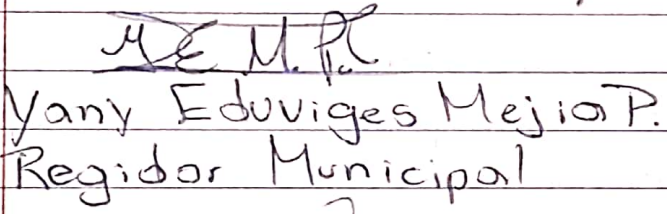 Yany Eduviges Mejia P.
Regidor Municipal